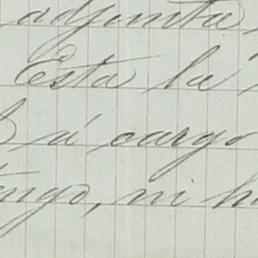 adjunta
Esta la
á cargo
tengo, ni h